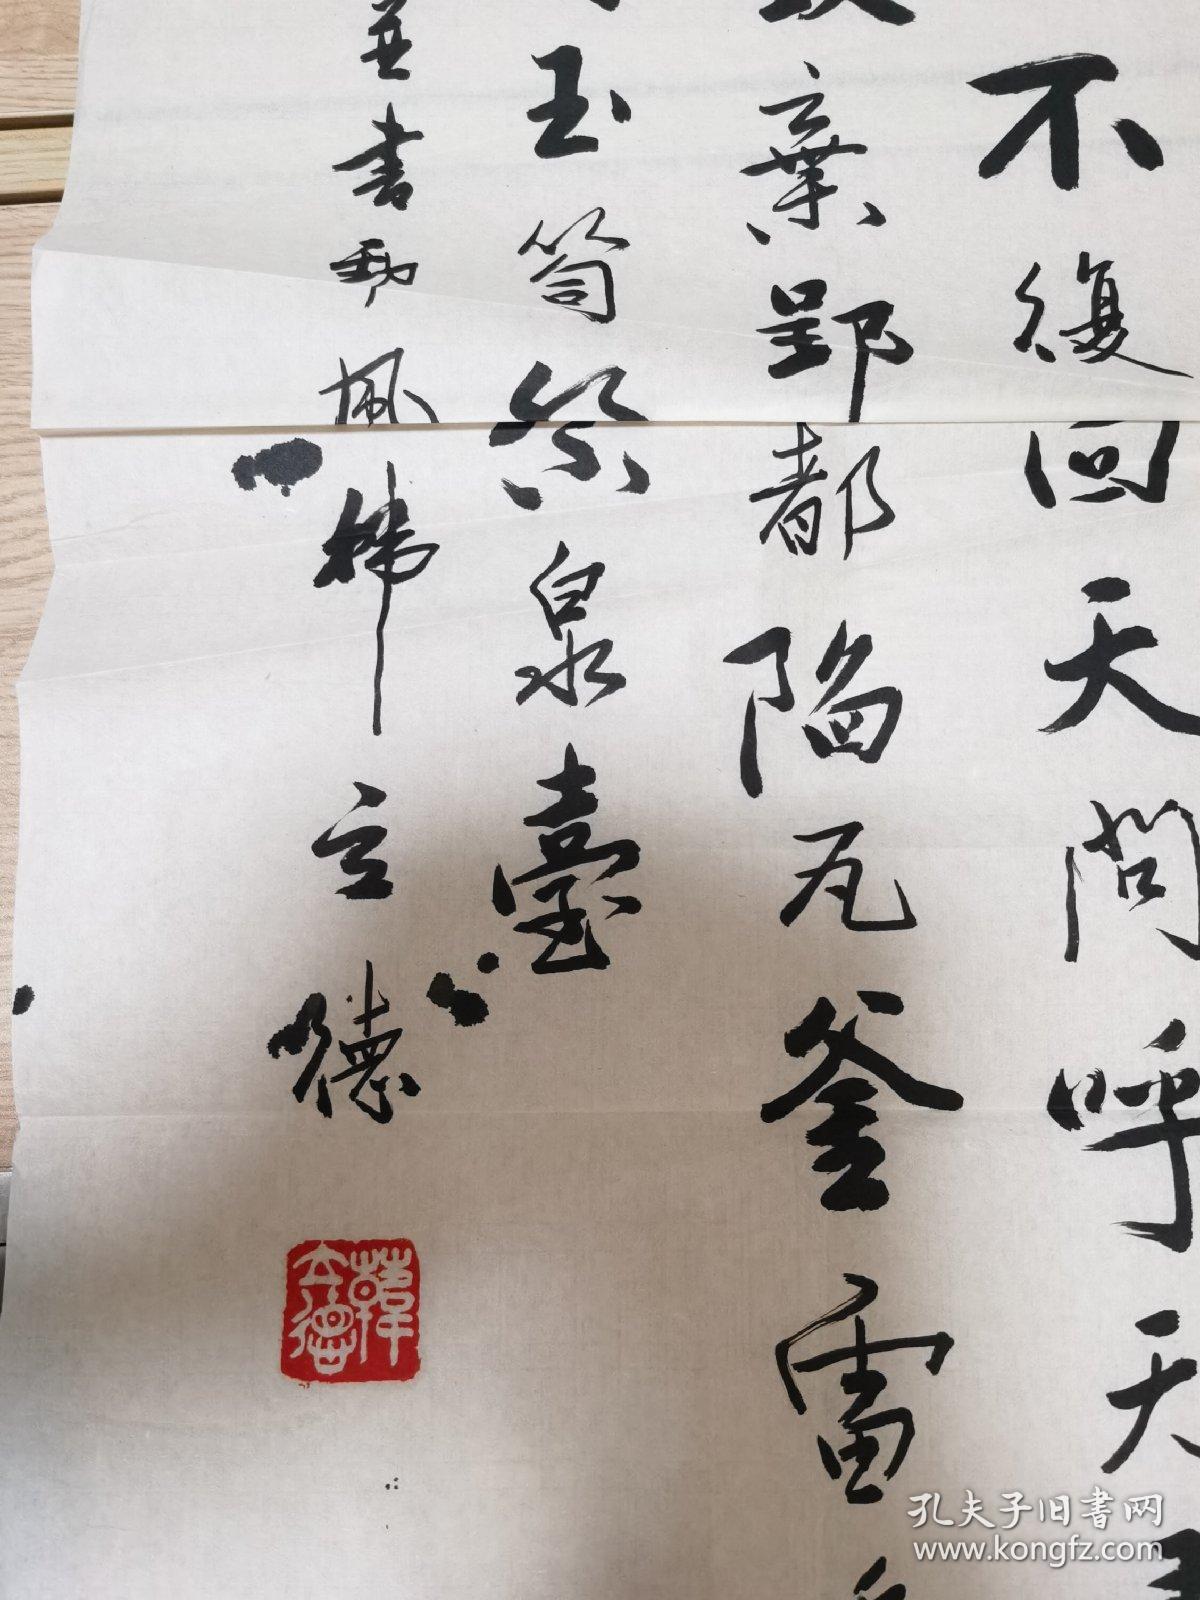 不復回天問呼天
棄郢都陷瓦釜雷
玉笥祭泉臺
並書勁風韓立德
韓立德
孔夫子旧書网
www.kongfz.com